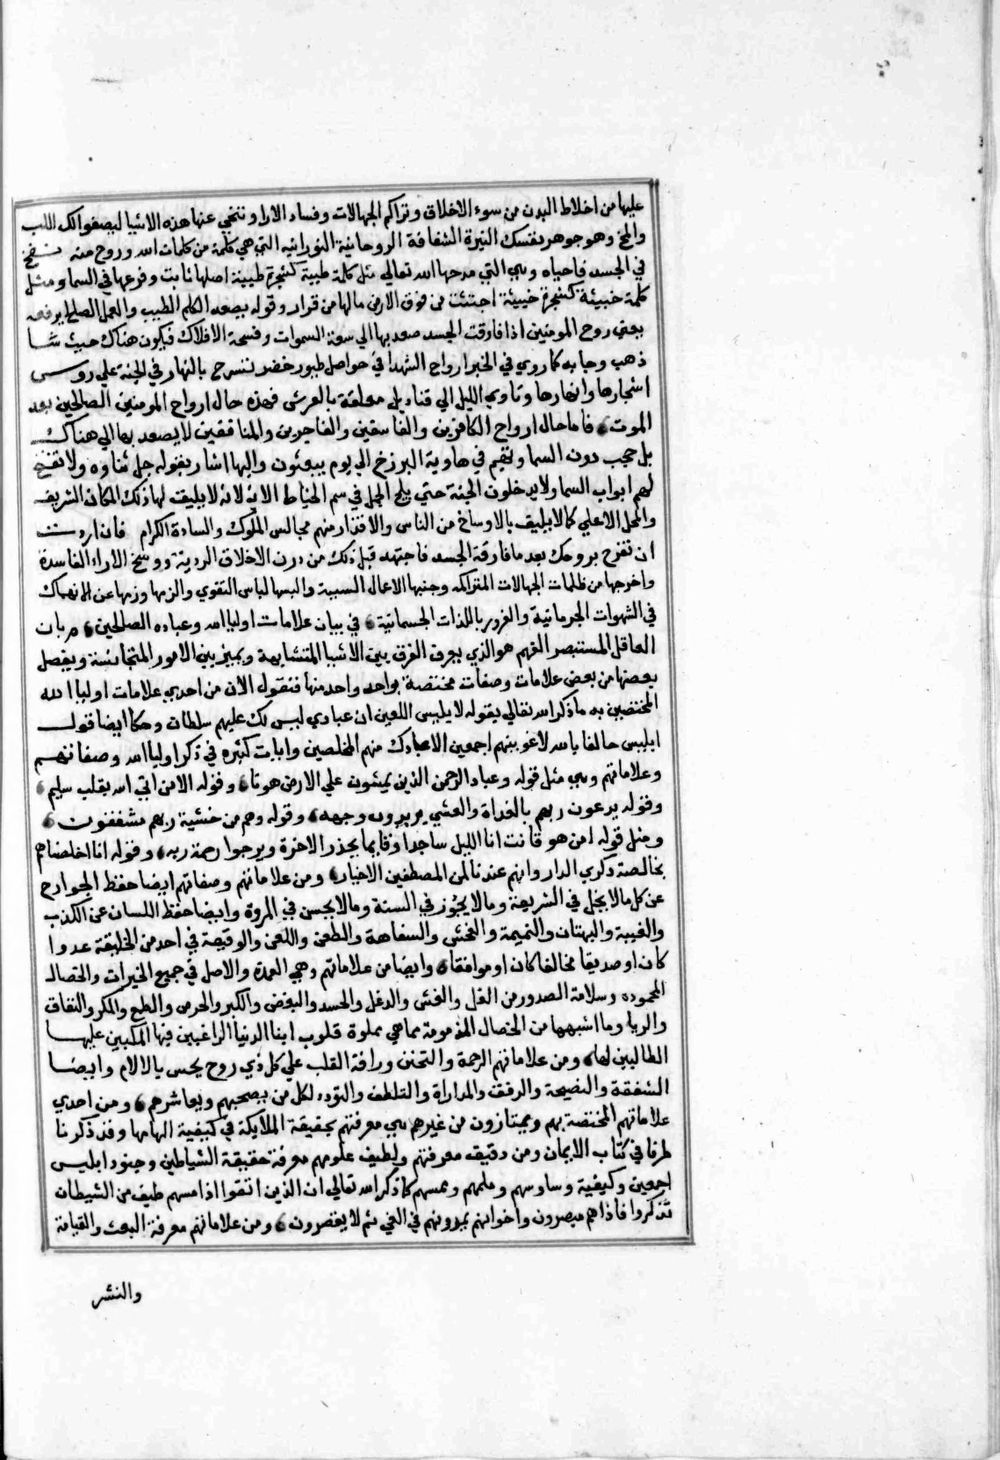 عليها من اخلاط البدن من سوء الاخلاق وتراكم الجهالات وفساد الارا وتنحي عنها هذه الاشيا ليصفوا لك اللب
والمخ وهو جوهر نفسك النيرة الشفافة الروحانية النورانيه التي هي كلمة من كلمات الله وروح منه نفخ
في الجسد فاحياه وهي التي مدحها الله تعالي مثل كلمة طيبة كشجرة طيبة اصلها ثابت وفرعها في السما ومثل
كلمة خبيثة كشجرة خبيثة اجتثت من فوق الارض مالها من قرار وقوله يصعد الكلم الطيب والعمل الصالح يرفعه
يعني روح المومنين اذا فارقت الجسد صعد بها الي سعة السموات وفسحة الافلاك فيكون هناك حيث شا
ذهب وجا به كما روي في الخبر ارواح الشهدا في حواصل طيور خضر تسرح بالنهار في الجنة علي روس
اشجارها وانهارها وتاوي الليل الي قناديل معلقة بالعرش فهذه حال ارواح المومنين الصالحين بعد
الموت فاما حال ارواح الكافرين والفاسقين والفاجرين والمنافقين لا يصعد بها الي هناك
بل حجب دون السما وتقيم في هاوية البرزخ الي يوم يبعثون واليها اشار بقوله جل ثناوه ولا تفتح
لهم ابواب السما ولا يدخلون الجنة حتي يلج الجمل في سم الخياط الاية لانه لا يليق لها ذلك المكان الشريف
والمحل الاعلي كما لا يليق بالاوساخ من الناس والاقذار منهم مجالس الملوك والسادة الكرام فان اردت
ان تفرح بروحك بعد ما فارقة الجسد فاجتهد قبل ذلك من درن الاخلاق الردية ووسخ الاراء الفاسدة
واخرجها من ظلمات الجهالات المتراكمه وجنبها الاعمال السيية والبسها لباس التقوي والزمها وزمها عن الانهماك
في الشهوات الجرمانية والغرور باللذات الجسمانية في بيان علامات اوليا الله وعباده الصالحين بان
العاقل المستبصر الفهم هو الذي يعرف الفرق بين الاشيا المتشابهة ويميز بين الامور المتجانسة ويفصل
بعضها من بعض علامات وصفات مختصة بواحد واحد منها فنقول الان من احدي علامات اوليا الله
المختصين به ما ذكر الله تعالي بقوله لابليس اللعين ان عبادي ليس لك عليهم سلطان وحكا ايضا قول
ابليس حالفا بالله لاغوينهم اجمعين الا عبادك منهم المخلصين وايات كثيره في ذكر اوليا الله وصفاتهم
وعلاماتهم وهي مثل قوله وعباد الرحمن الذين يمشون علي الارض هونا وقوله الا من اتي الله بقلب سليم
وقوله يدعون ربهم بالغداة والعشي يريدون وجهه وقوله وهم من خشية ربهم مشفقون
ومثل قوله امن هو قانت انا الليل ساجدا وقايما يحذر الاخرة ويرجوا رحمة ربه وقوله انا اخلصناهم
بخالصة ذكري الدار وانهم عندنا لمن المصطفين الاخيار ومن علاماتهم وصفاتهم ايضا حفظ الجوارح
عن كل ما لا يحل في الشريعة وما لا يجوز في السنة وما لا يحسن في المروة وايضا حفظ اللسان عن الكذب
والغيبة والبهتان والنميمة والفحش والسفاهة والطعن واللعن والوقيعة في احد من الخليقة عدوا
كان او صديقا مخالفا كان او موافقا وايضا من علاماتهم وهي العمدة والاصل في جميع الخيرات والخصال
المحموده وسلامة الصدور من الغل والغش والدغل والحسد والبغض والكبر والحرص والطمع والمكر والنفاق
والريا وما اشبهها من الخصال المذمومة مما هي مملوة قلوب ابنا الدنيا الراغبين فيها المكبين عليها
الطالبين لها ومن علاماتهم الرحمة والتحنن ورافة القلب علي كل ذي روح يحس بالالام وايضا
الشفقة والنصيحة والرفق والمداراة والتلطف والتودد لكل من يصحبهم ويعاشرهم ومن احدي
علاماتهم المختصة بهم ويمتازون من غيرهم هي معرفتهم بحقيقة الملايكة في كيفية الهامها وقد ذكرنا
طرفا في كتاب الايمان ومن دقيق معرفتهم ولطيف علومهم معرفة حقيقة الشياطين وجنود ابليس
اجمعين وكيفية وساوسهم وملمهم ومسهم كما ذكر الله تعالي ان الذين اتقوا اذا مسهم طيف من الشيطان
تذكروا فاذا هم مبصرون واخوانهم يمدونهم في الغي ثم لا يقصرون ومن علاماتهم معرفة البعث والقيامة
والنشر